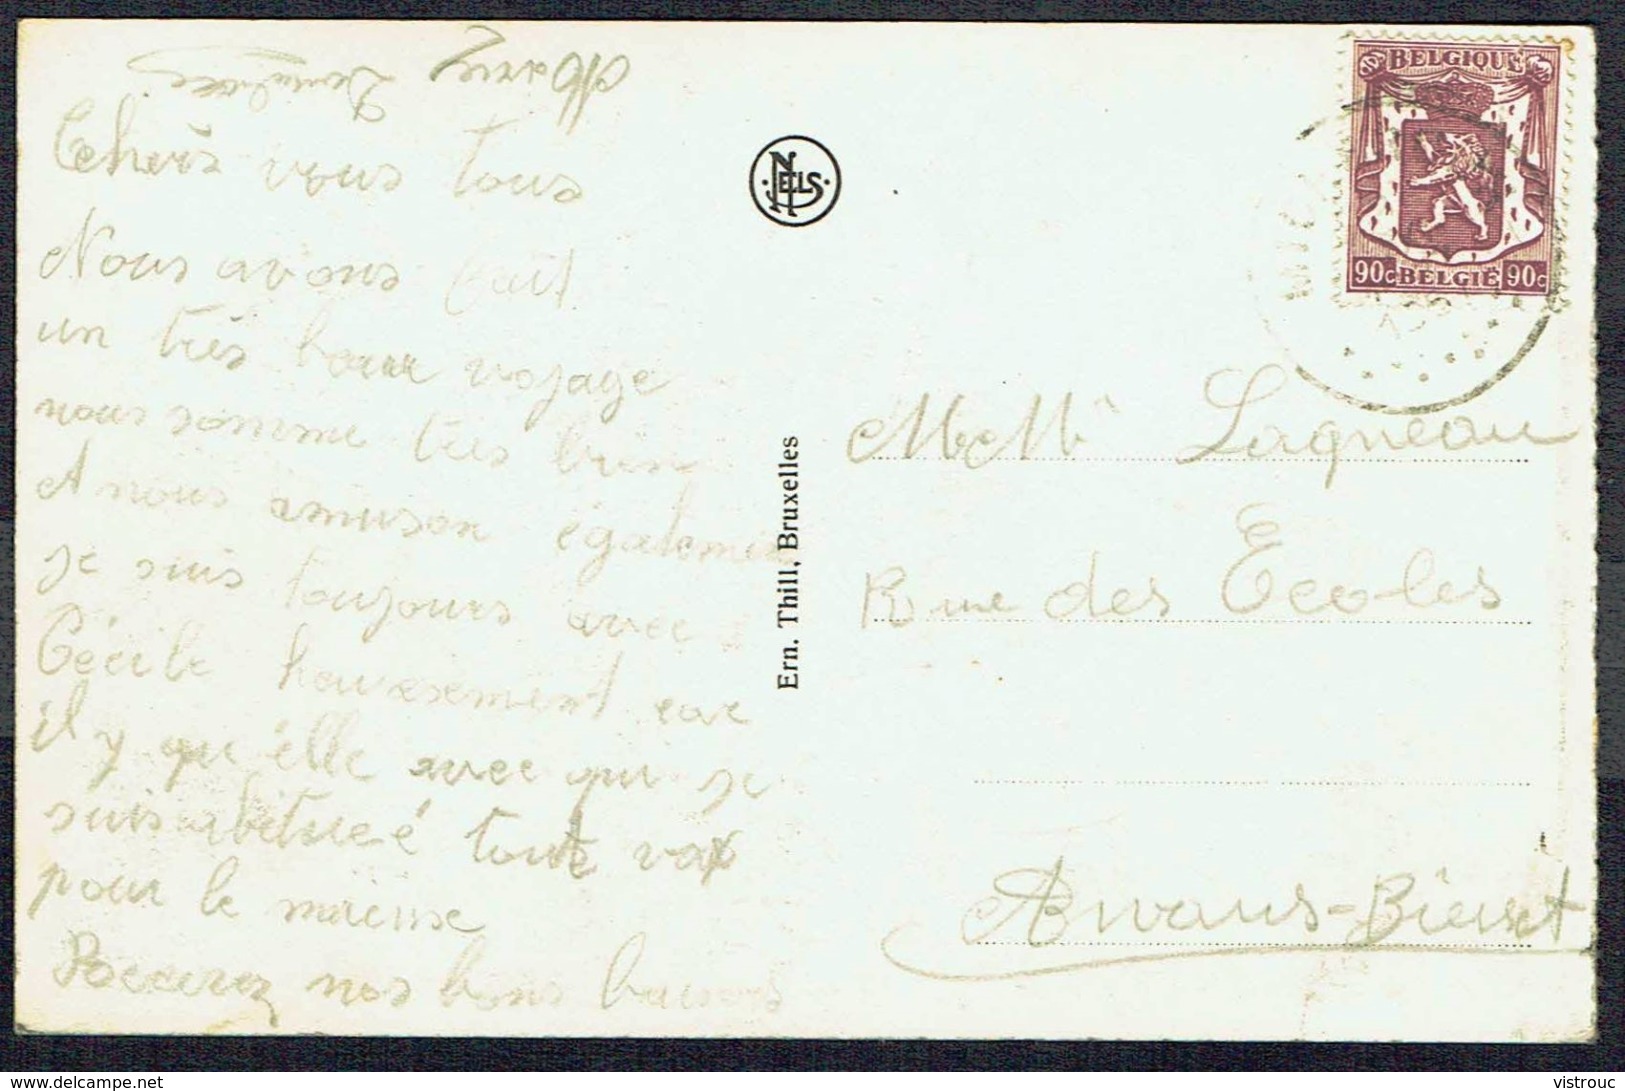 Chers vous tous
Nous avons fait
un très bonne voyage
nous somme très bien
et nous amuson égalemen
je suis toujours avec
Cécile heuresement car
il y qu'élle avec qui je
suis abitueé toute vax
pour le mieuse
Recevez nos bons baisers
Marie
NELS
Ern. Thill, Bruxelles
BELGIQUE
90c BELGIË 90c
M M Lagneau
Rue des Ecoles
Awans-Bierset
vistrouc
www.delcampe.net